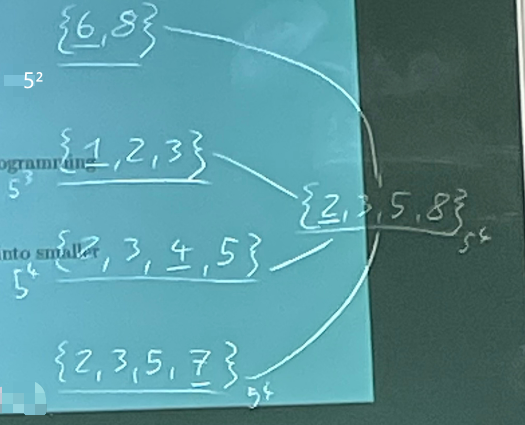 {6,8}
5²
ogramming
{1,2,3}
5³
{2,3,5,8}
5⁴
into smaller
{2,3,4,5}
5⁴
{2,3,5,7}
5⁴